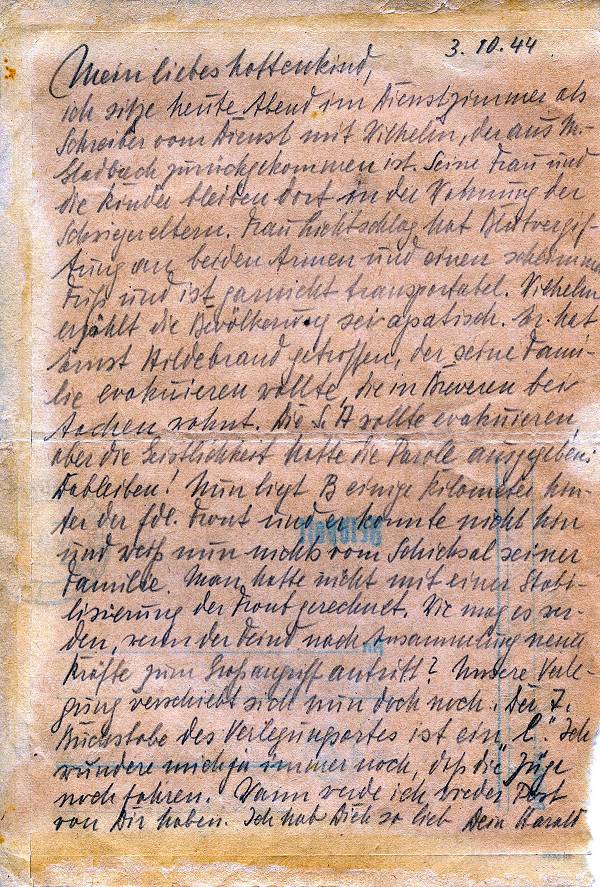 3. 10. 44.
Mein liebes Lottenkind,
ich sitze heute Abend im Dienstzimmer als
Schreiber vom Dienst mit Wilhelm, der aus M.-
Gladbach zurückgekommen ist. Seine Frau und
die Kinder bleiben dort in der Wohnung der
Schwiegereltern. Frau hat Blutvergif-
tung an beiden Armen und einen schlimmen
Fuß und ist garnicht transportabel. Wilhelm
erzählt die Bevölkerung sei apatisch. Er hat
Ernst Hildebrand getroffen, der seine Fami-
lie evakuieren wollte, die in Breveren bei
Aachen wohnt. Die S.A wollte evakuieren,
aber die Geistlichkeit hatte die Parole ausgegeben:
Dableiben! Nun liegt B einige Kilometer hin-
ter der fdl. Front und er konnte nicht hin
und weiß nun nichts vom Schicksal seiner
Familie. Man hatte nicht mit einer Stabi-
lisierung der Front gerechnet. Wie mag es wer-
den, wenn der Feind nach Ansammlung neuer
Kräfte zum Großangriff antritt? Unsere Verle-
gung verschiebt sich nun doch noch. Der 7.
Buchstabe des Verlegungsortes ist ein „l“. Ich
wundere mich ja immer noch, daß die Züge
noch fahren. Wann werde ich wieder Post
von Dir haben. Ich hab Dich so lieb Dein Harald